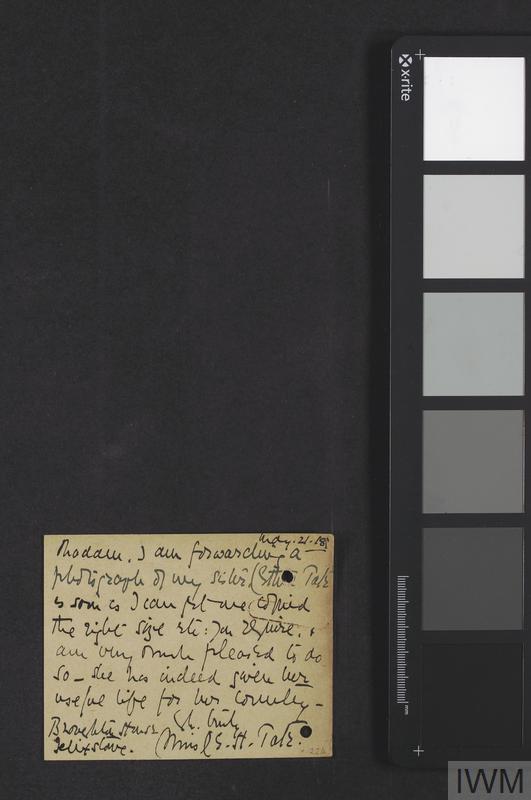 x-rite
May. 21. 18
Madam. I am forwarding a
photograph of my sister (Tate
as soon as I can get one copied
the right size etc: you require. &
am very much pleased to do
so - she has indeed given her
useful life for her Country -
Broughton House
Felixstowe.
truly
(Miss) E. H. Tate.
mm
IWM